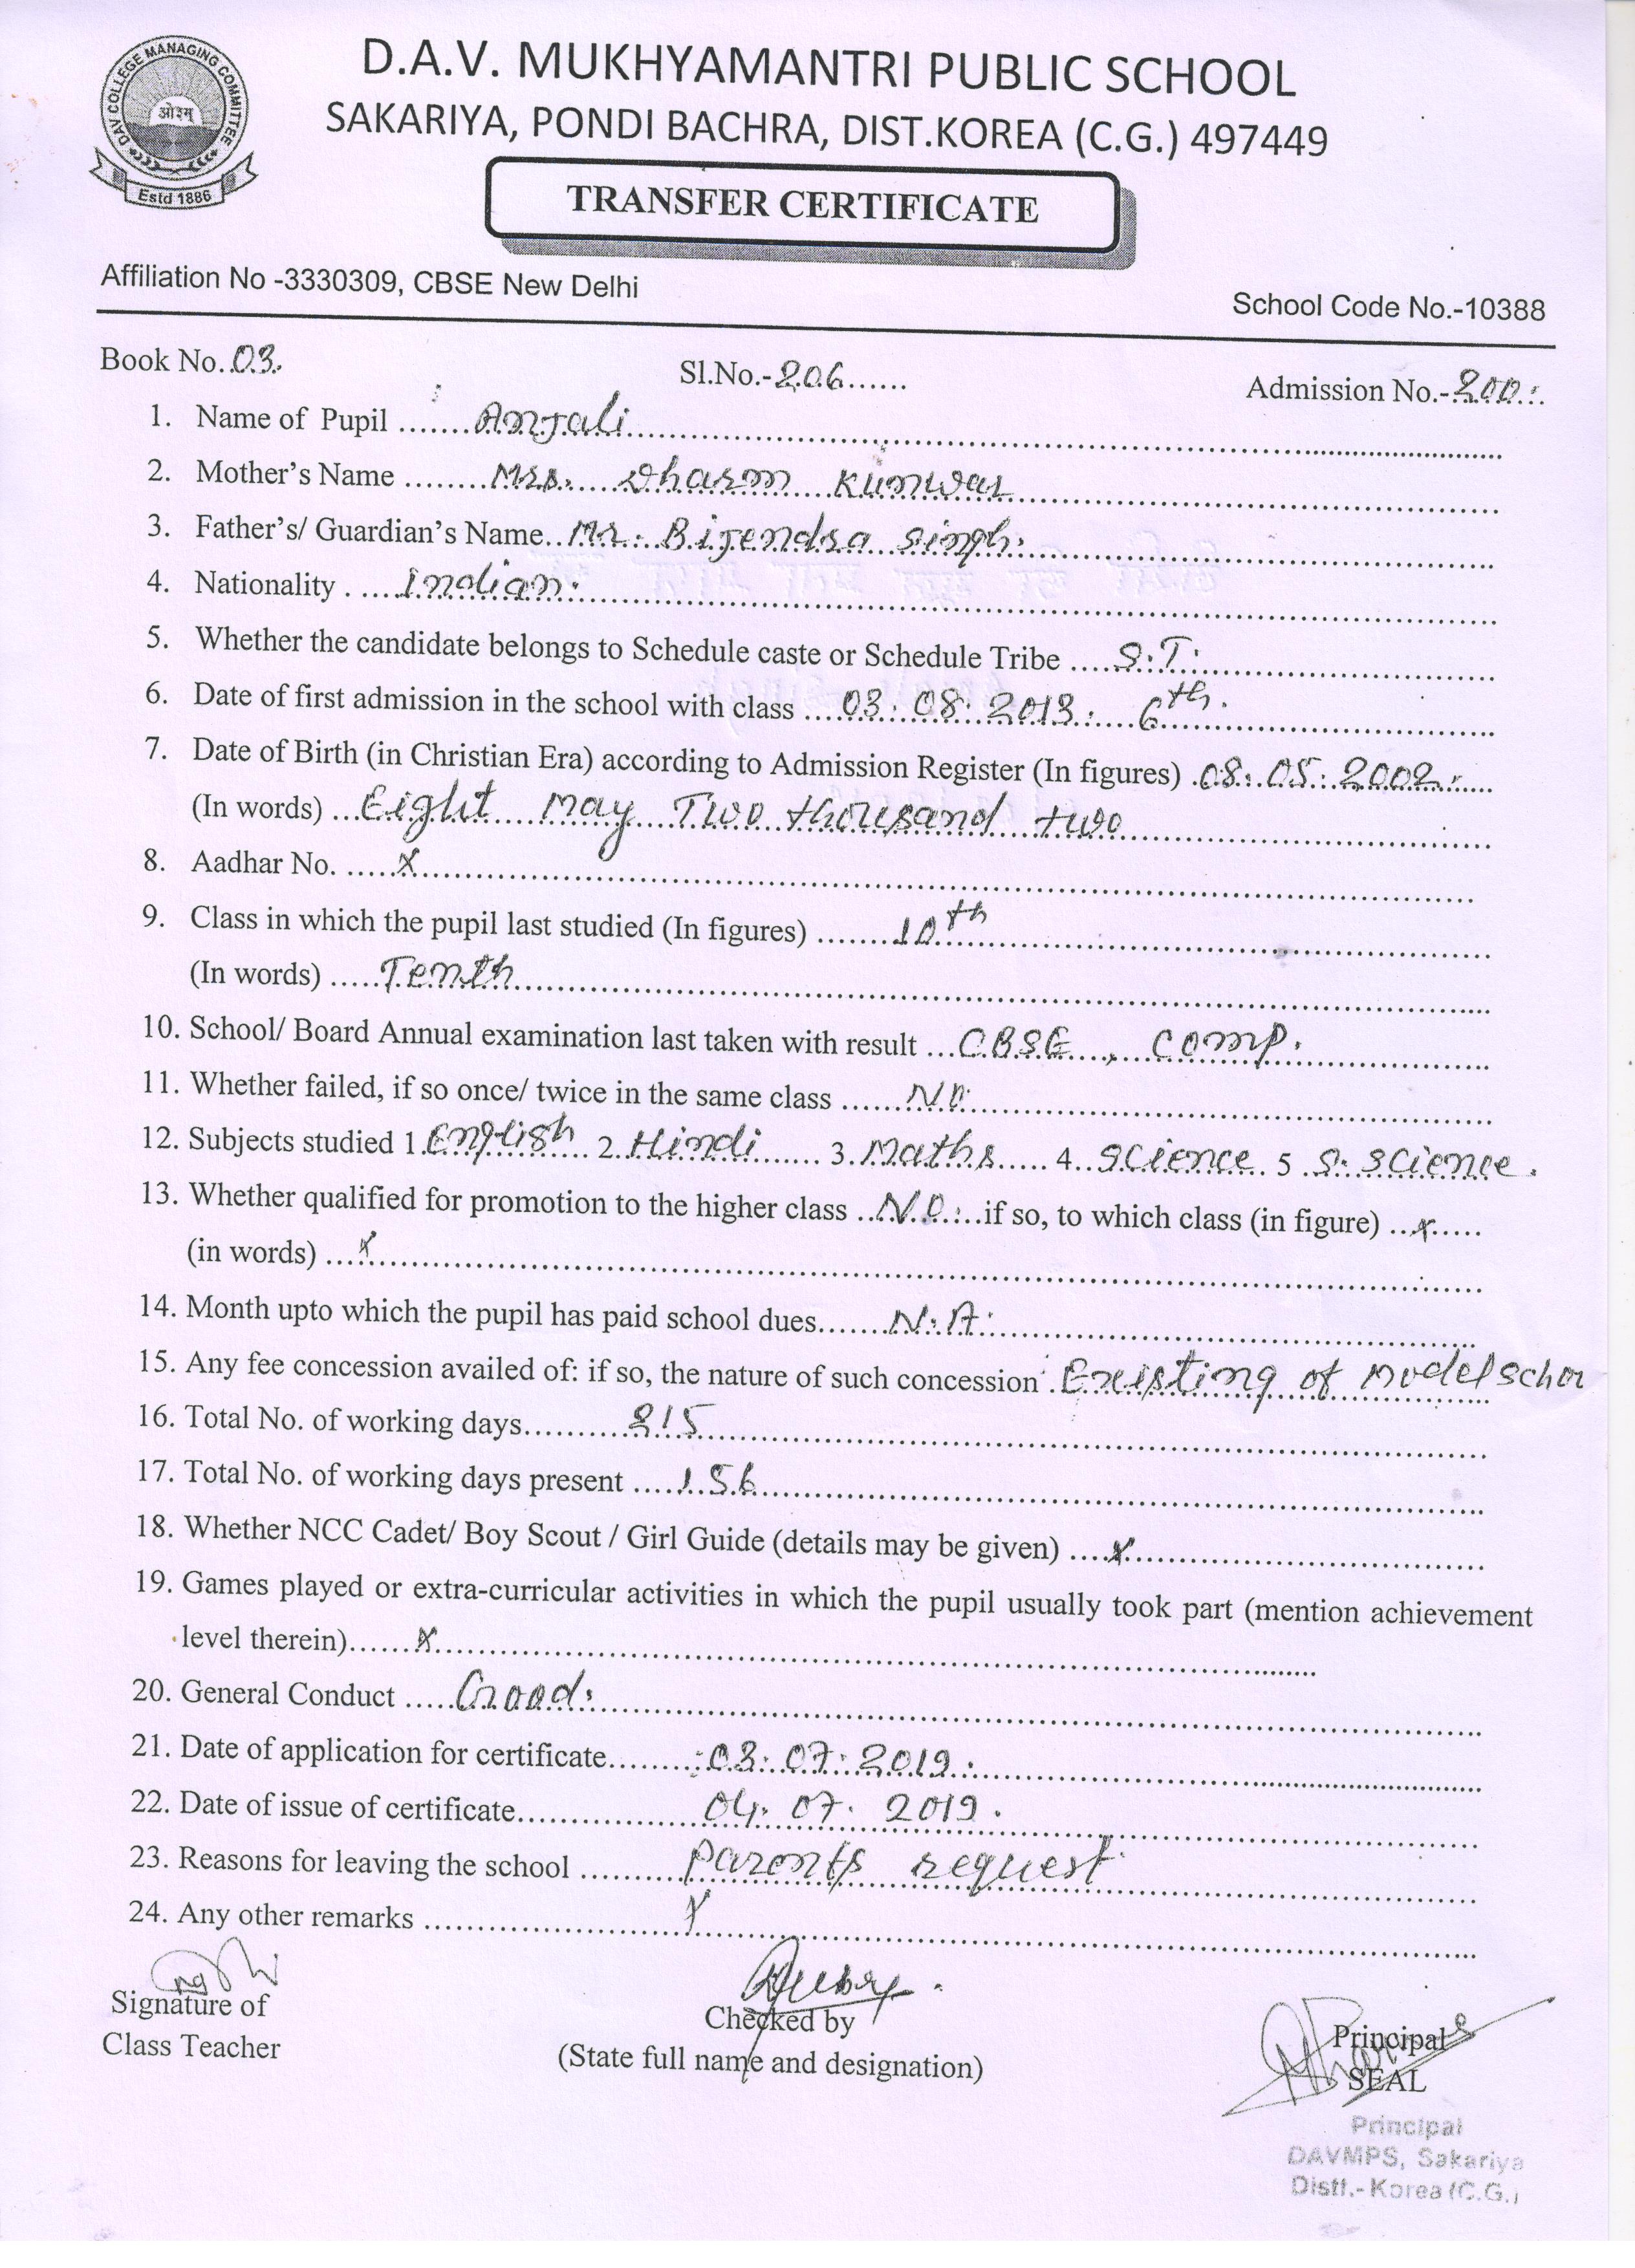 DAV COLLEGE MANAGING COMMITTEE
ओ३म्
Estd 1886
D.A.V. MUKHYAMANTRI PUBLIC SCHOOL
SAKARIYA, PONDI BACHRA, DIST.KOREA (C.G.) 497449
TRANSFER CERTIFICATE
Affiliation No -3330309, CBSE New Delhi
School Code No.-10388
Book No. 03. Sl.No.-206 Admission No.-200
1. Name of Pupil Anjali
2. Mother's Name Mrs. Dharm Kunwar
3. Father's/ Guardian's Name Mr. Bijendra Singh.
4. Nationality Indian.
5. Whether the candidate belongs to Schedule caste or Schedule Tribe S.T.
6. Date of first admission in the school with class 03.08.2013. 6th.
7. Date of Birth (in Christian Era) according to Admission Register (In figures) 08.05.2002.
(In words) Eight May Two thousand two
8. Aadhar No. x
9. Class in which the pupil last studied (In figures) 10th
(In words) Tenth
10. School/ Board Annual examination last taken with result CBSE, comp.
11. Whether failed, if so once/ twice in the same class NO
12. Subjects studied 1. English 2. Hindi 3. Maths 4. Science 5 S. Science.
13. Whether qualified for promotion to the higher class NO. if so, to which class (in figure) x
(in words) x
14. Month upto which the pupil has paid school dues N.A.
15. Any fee concession availed of: if so, the nature of such concession Exeisting of Model Schoo
16. Total No. of working days 215
17. Total No. of working days present 156
18. Whether NCC Cadet/ Boy Scout / Girl Guide (details may be given) x
19. Games played or extra-curricular activities in which the pupil usually took part (mention achievement
level therein) x
20. General Conduct Good.
21. Date of application for certificate 03.07.2019.
22. Date of issue of certificate 04.07.2019.
23. Reasons for leaving the school Parents request
24. Any other remarks x
Signature of
Class Teacher
Checked by
(State full name and designation)
Principal
SEAL
Principal
DAVMPS, Sakariya
Distt.- Korea (C.G.)